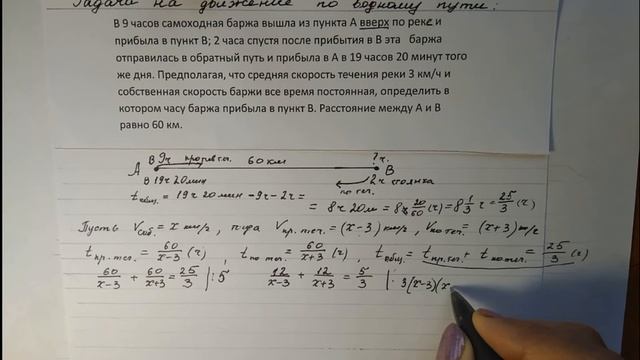 Задача на движение по водному пути:
В 9 часов самоходная баржа вышла из пункта А вверх по реке и
прибыла в пункт В; 2 часа спустя после прибытия в В эта баржа
отправилась в обратный путь и прибыла в А в 19 часов 20 минут того
же дня. Предполагая, что средняя скорость течения реки 3 км/ч и
собственная скорость баржи все время постоянная, определить в
котором часу баржа прибыла в пункт В. Расстояние между А и В
равно 60 км.
В 9ч против теч. 60 км ?ч.
А В
В 19ч 20мин по теч. 2ч стоянка
tобщ. = 19ч 20мин - 9ч - 2ч =
= 8ч 20м = 8 20/60 (ч) = 8 1/3 ч = 25/3 (ч)
Пусть Vсоб. = x км/ч, тогда Vпр.теч. = (x-3) км/ч, Vпо теч. = (x+3) км/ч
tпр.теч. = 60/(x-3) (ч) tпо теч. = 60/(x+3) (ч), tобщ. = tпр.теч. + tпо теч. = 25/3 (ч)
60/(x-3) + 60/(x+3) = 25/3 |:5 12/(x-3) + 12/(x+3) = 5/3 | · 3(x-3)(x